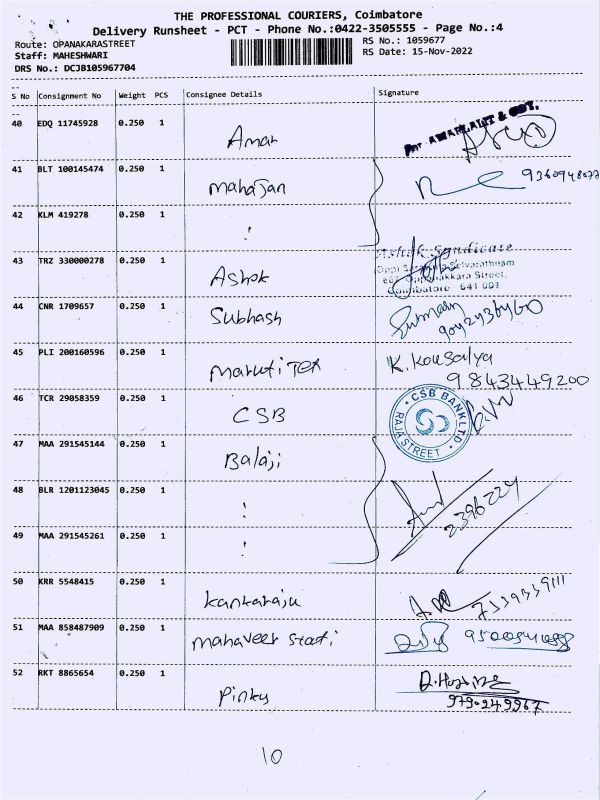 THE PROFESSIONAL COURIERS, Coimbatore
Delivery Runsheet - PCT - Phone No.:0422-3505555 - Page No.:4
Route: OPANAKARASTREET RS No.: 1059677
Staff: MAHESHWARI RS Date: 15-Nov-2022
DRS No.: DCJB105967704
S No Consignment No Weight PCS Consignee Details Signature
40 EDQ 11745928 0.250 1 Aman
41 BLT 100145474 0.250 1 Mahajan
42 KLM 419278 0.250 1
43 TRZ 330000278 0.250 1 Ashok Ashok Syndicate
Coimbatore 641 001
44 CNR 1709657 0.250 1 Subhash
45 PLI 200160596 0.250 1 Maruti Tex K. Kousalya
9843449200
46 TCR 29058359 0.250 1 CSB CSB BANK LTD RAJA STREET
47 MAA 291545144 0.250 1 Balaji
48 BLR 1201123045 0.250 1 2396224
49 MAA 291545261 0.250 1
50 KRR 5548415 0.250 1 Kankaraju
51 MAA 858487909 0.250 1 Mahaveer
52 RKT 8865654 0.250 1 Pinky
9790249967
10